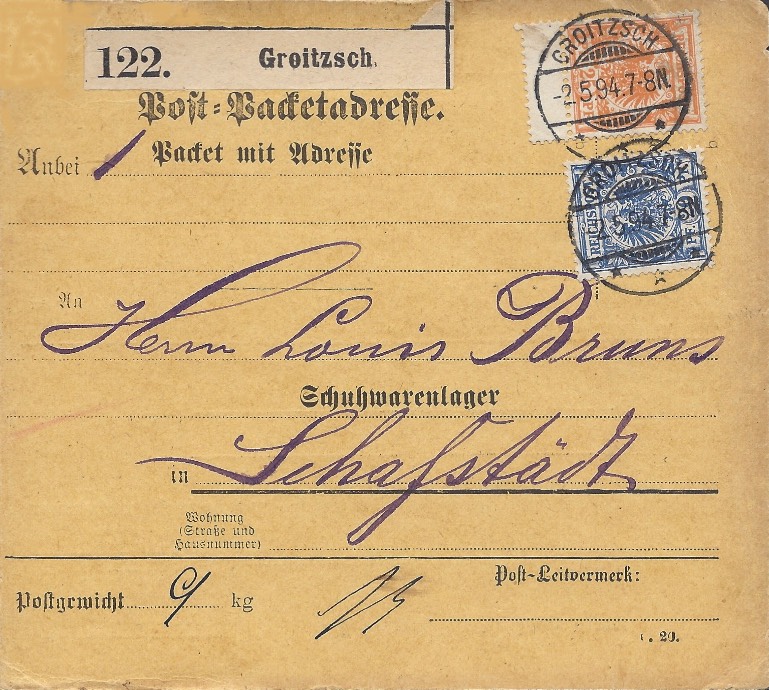 122. Groitzsch.
GROITZSCH
-2.5.94.7-8N.
Post-Packetadresse.
Anbei 1 Packet mit Adresse
GROITZSCH
2.5.94.7-8N
REICHSPOST
An
Herrn Louis Bruns
Schuhwarenlager
in Schafstädt
Wohnung
(Straße und
Hausnummer)
Post-Leitvermerk:
Postgewicht 9 kg
20.